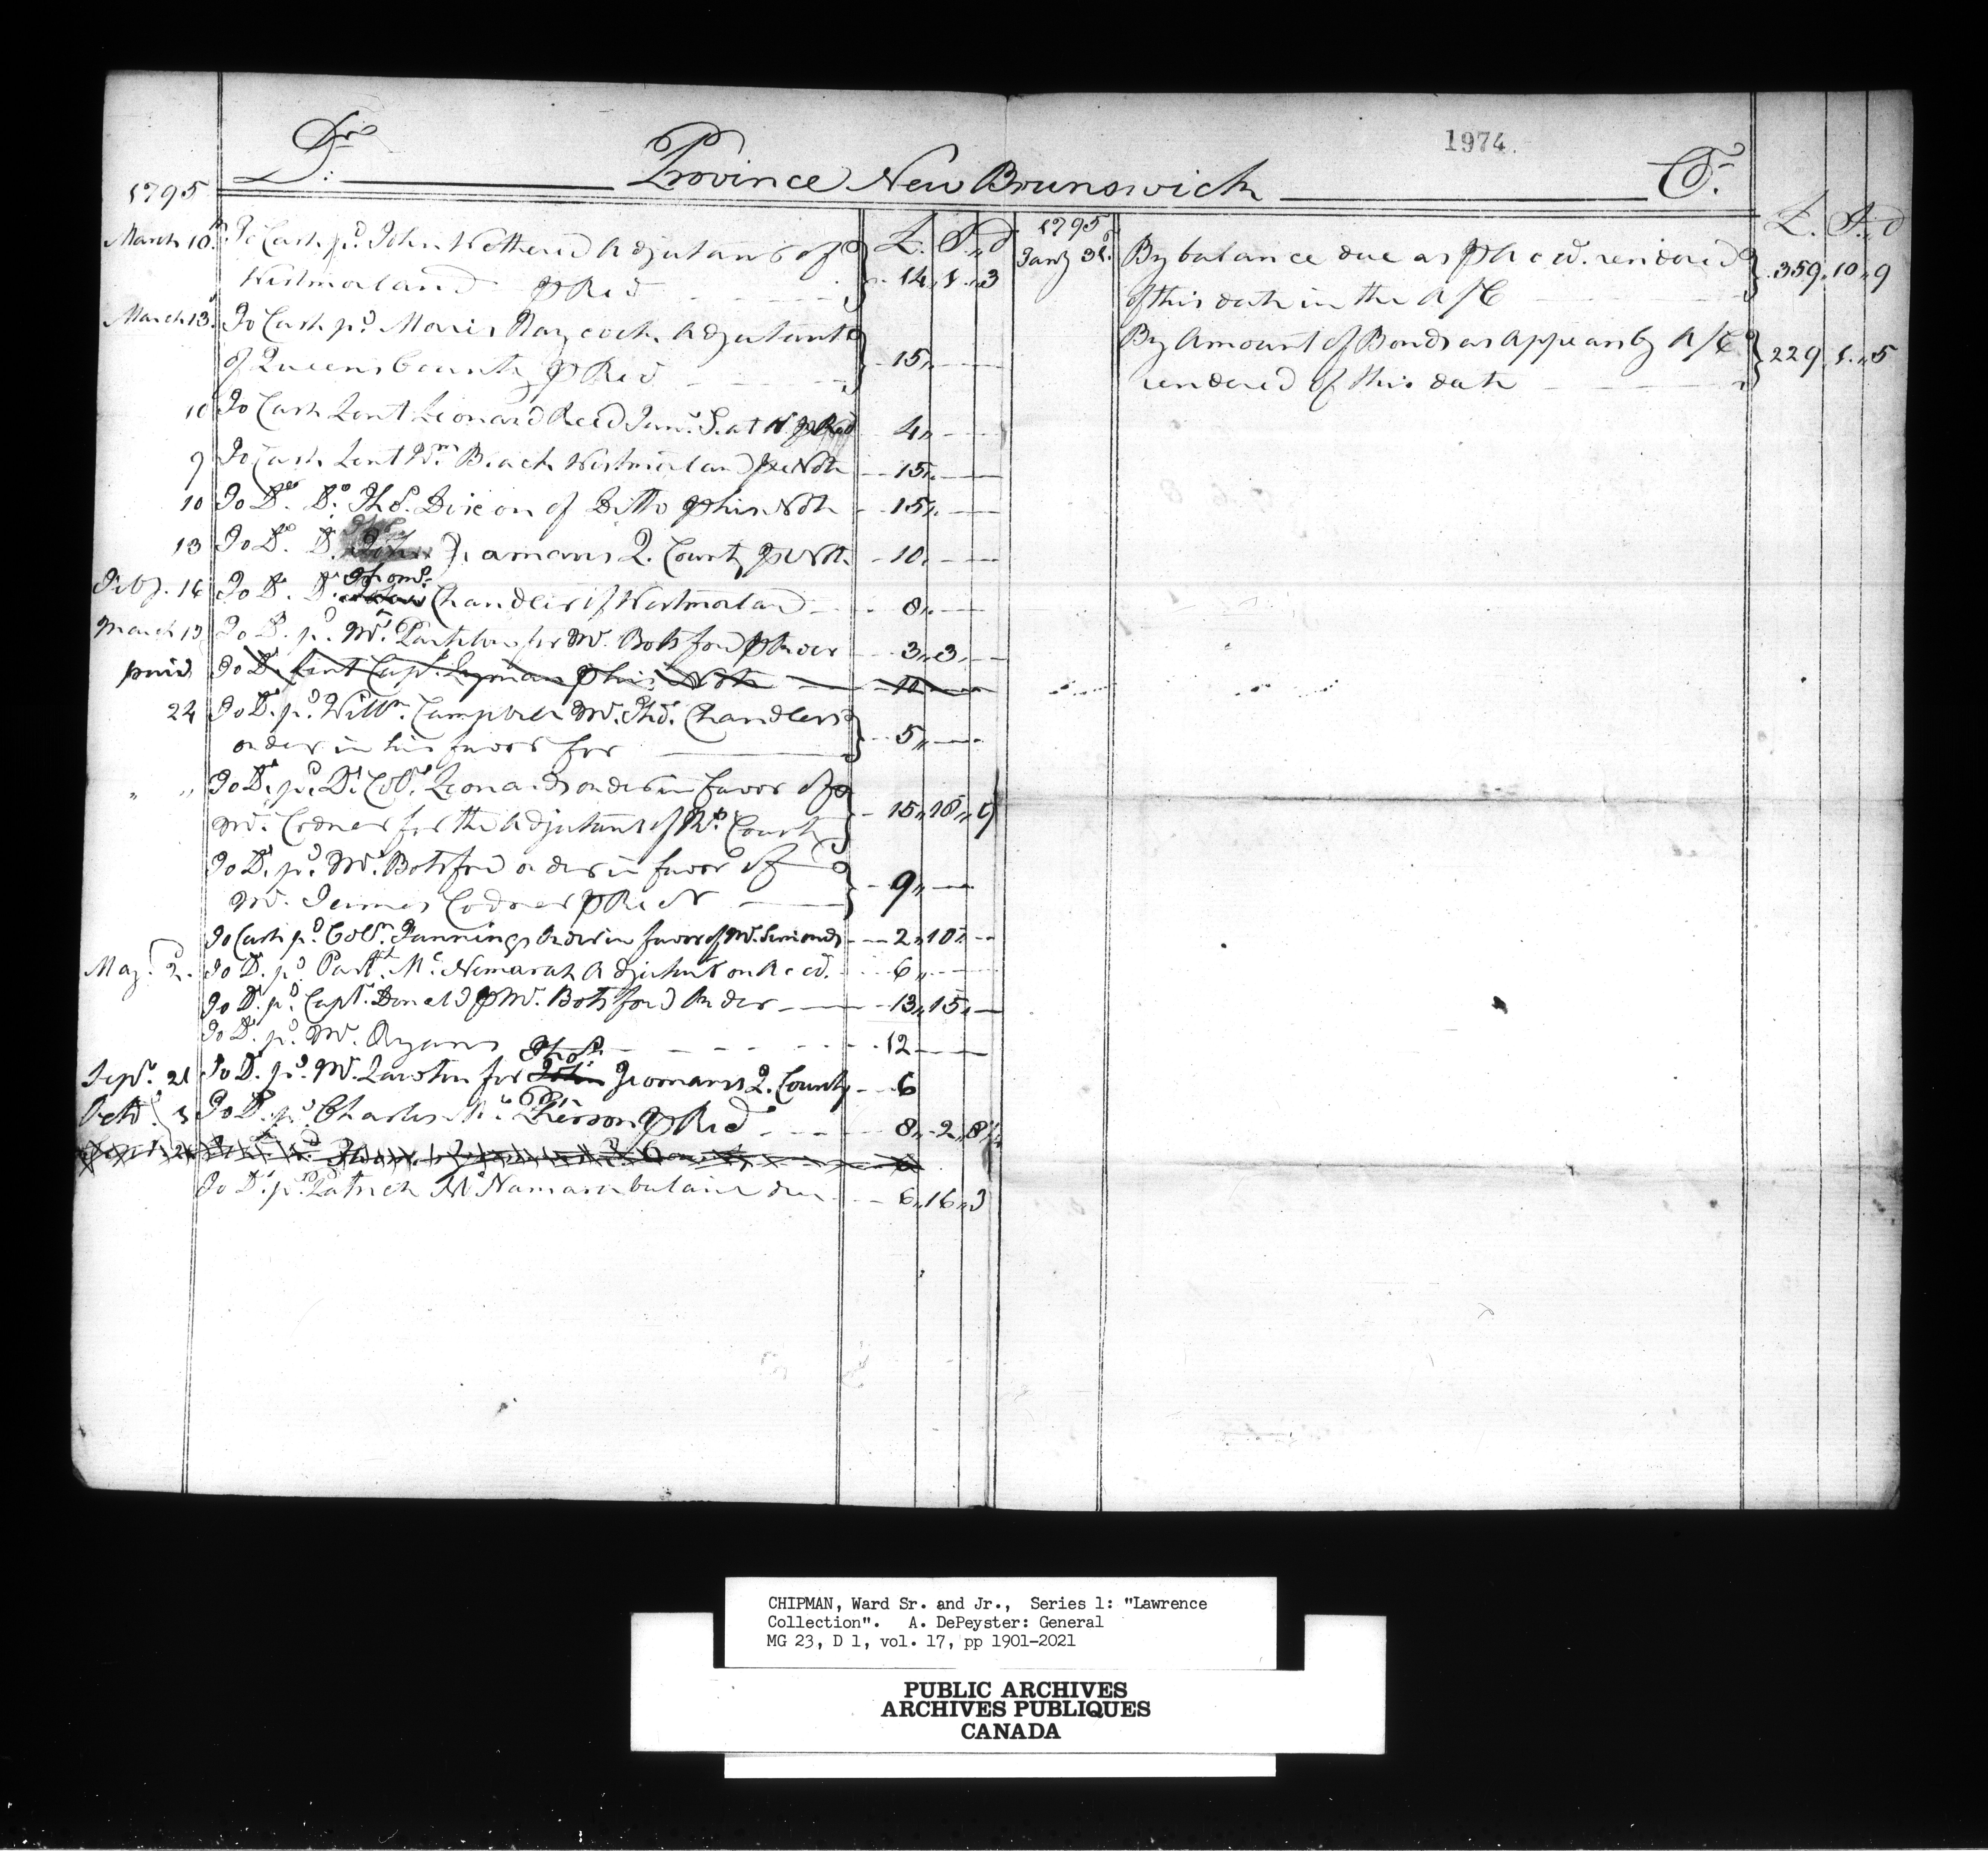 1974.
Dr. Province New Brunswick Cr.
1795
£. S. d
March 10th To Cash pd. John Wethered Adjutant of
Westmorland ₱ Recd 14 " 1 " 3
March 13. To Cash pd. Maris Raycock Adjutant
of Queens County ₱ Recd 15 "
10 To Cash Lent Leonard Reed Junr. 4 "
9 To Cash Lent Wm. Black Westmorland ₱ Note 15 "
10 To Do. Do. Ths. Dixon of Ditto ₱ his Note 15 "
13 To Do. Do. Yeamans Q. County ₱ Note 10 "
Feby. 16 To Do. Do. Thoms. Chandler of Westmorland 8 "
March 13 To Do. pd. Mr. for Mr. Botsford ₱ Order 3 " 3 "
paid To Do. Lent Capt. Lyman ₱ his Note 10
24 To Do. pd. Willm. Campbell Mr. Ths. Chandlers
order in his favor for 5 "
" " To Do. pd. Do. Coll. Leonards order in favor of
Mr. Codner for the Adjutant of Court 15 " 18 " 9
To Do. pd. Mr. Botsford order in favor of
Mr. James Codner ₱ Rect 9 "
To Cash pd. Coln. Fannings Order in favor of Mr. Simonds 2 " 10 "
May. 2. To Do. pd. Patt. Mc. Nemarah Adjutant on Accd. 6 "
To Do. pd. Capt. Donald ₱ Mr. Botsford Order 13 " 15 "
To Do. pd. Mr. Ryans 12
Sepr. 21 To Do. pd. Mr. Lawton for John Thos. Yeomans Q. County 6
Octr. 3 To Do. pd. Charles Mc. Pherson ₱ Recd 8 " 2 " 8 1/4
To Do. pd. Patrick Mc Namara balance due 6 " 16 " 3
1795
£. S. d
Jany 31. By balance due as ₱ Accd. rendered
of this date in the A/C 359 " 10 " 9
By Amount of Bonds as Appears by A/C
rendered of this date 229 " 1 " 5
CHIPMAN, Ward Sr. and Jr., Series 1: "Lawrence
Collection". A. DePeyster: General
MG 23, D 1, vol. 17, pp 1901-2021
PUBLIC ARCHIVES
ARCHIVES PUBLIQUES
CANADA